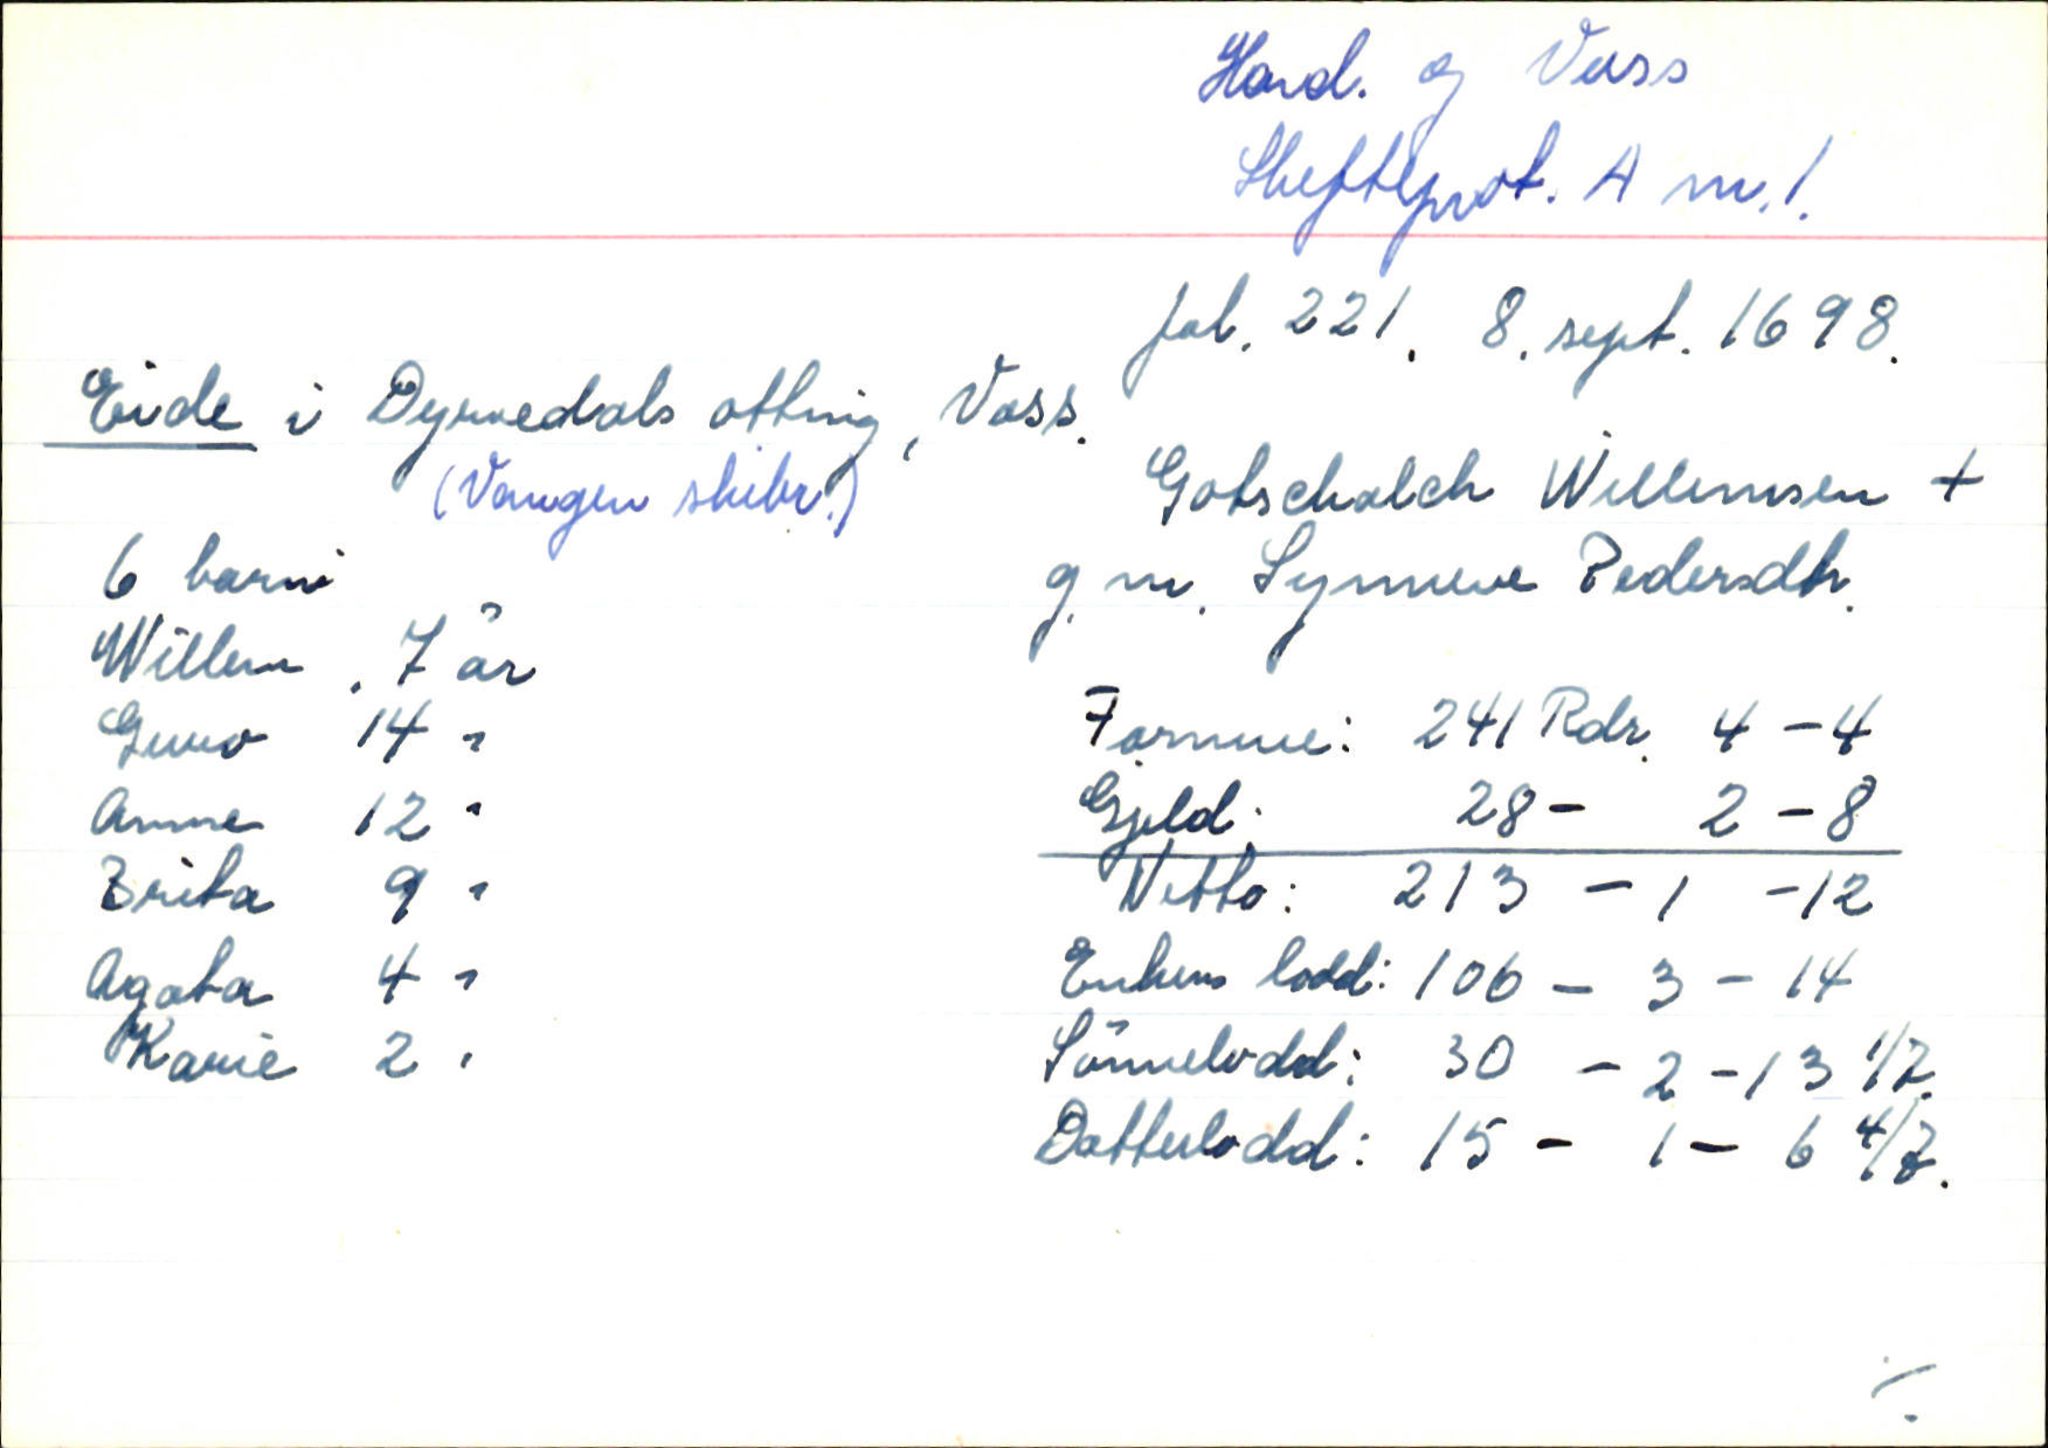 Hard. og Voss
Skifteprot. A nr. 1.
fol. 221. 8. sept. 1698.
Eide i Dyrvedals otting, Voss.
(Vangen skibr.)
Gotschalch Willemsen +
g. m. Synneve Pedersdtr.
6 barn
Willem . 7 år
Guro 14 "
Anna 12 "
Brita 9 "
Agata 4 "
Karie 2 "
Formue: 241 Rdr. 4 - 4
Gjeld: 28 - 2 - 8
Netto: 213 - 1 - 12
Enkens lodd: 106 - 3 - 14
Sønnelodd: 30 - 2 - 13 1/7.
Datterlodd: 15 - 1 - 6 4/7.